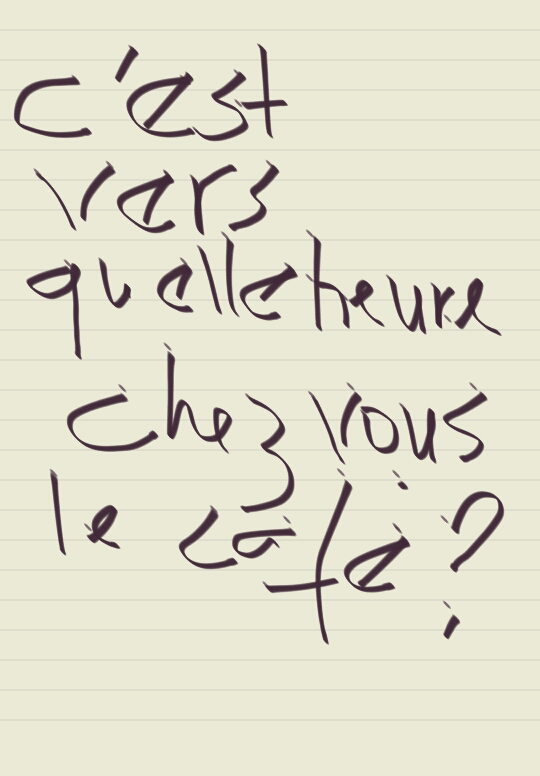 c'est
vers
quelle heure
chez vous
le café?